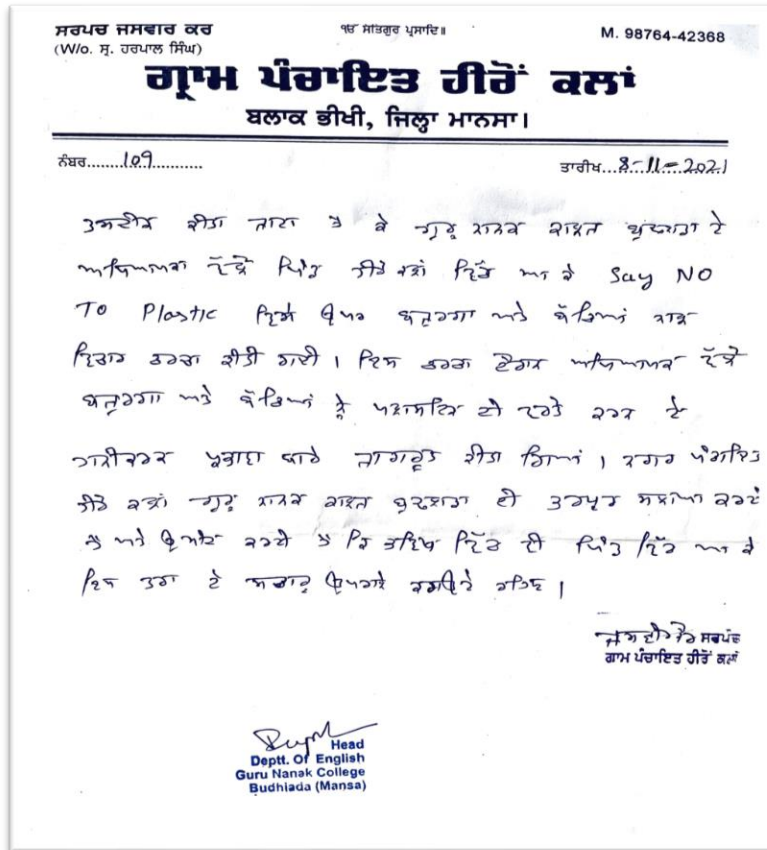 ਸਰਪਚ ਜਸਵਾਰ ਕਰ
(W/o. ਸ੍ਰ. ਹਰਪਾਲ ਸਿੰਘ)
ੴ ਸਤਿਗੁਰ ਪ੍ਰਸਾਦਿ॥
M. 98764-42368
ਗ੍ਰਾਮ ਪੰਚਾਇਤ ਹੀਰੋਂ ਕਲਾਂ
ਬਲਾਕ ਭੀਖੀ, ਜਿਲ੍ਹਾ ਮਾਨਸਾ।
ਨੰਬਰ........109...........
ਤਾਰੀਖ...8-11-2021
ਤਸਦੀਕ ਕੀਤਾ ਜਾਂਦਾ ਹੈ ਕਿ ਗੁਰੂ ਨਾਨਕ ਕਾਲਜ ਬੁਢਲਾਡਾ ਦੇ
ਅਧਿਆਪਕਾਂ ਵੱਲੋਂ ਪਿੰਡ ਹੀਰੋਂ ਕਲਾਂ ਵਿੱਚ ਆ ਕੇ Say NO
To Plastic ਵਿਸ਼ੇ ਉਪਰ ਬਜ਼ੁਰਗਾਂ ਅਤੇ ਬੱਚਿਆਂ ਨਾਲ
ਵਿਚਾਰ ਚਰਚਾ ਕੀਤੀ ਗਈ। ਇਸ ਚਰਚਾ ਦੌਰਾਨ ਅਧਿਆਪਕਾਂ ਵੱਲੋਂ
ਬਜ਼ੁਰਗਾਂ ਅਤੇ ਬੱਚਿਆਂ ਨੂੰ ਪਲਾਸਟਿਕ ਦੀ ਵਰਤੋਂ ਕਰਨ ਦੇ
ਹਾਨੀਕਾਰਕ ਪ੍ਰਭਾਵਾਂ ਬਾਰੇ ਜਾਗਰੂਕ ਕੀਤਾ ਗਿਆ। ਨਗਰ ਪੰਚਾਇਤ
ਹੀਰੋਂ ਕਲਾਂ ਗੁਰੂ ਨਾਨਕ ਕਾਲਜ ਬੁਢਲਾਡਾ ਦੀ ਭਰਪੂਰ ਸ਼ਲਾਘਾ ਕਰਦੀ
ਹੈ ਅਤੇ ਉਮੀਦ ਕਰਦੀ ਹੈ ਕਿ ਭਵਿੱਖ ਵਿੱਚ ਵੀ ਪਿੰਡ ਵਿੱਚ ਆ ਕੇ
ਇਸ ਤਰਾਂ ਦੇ ਉਪਰਾਲੇ ਰਹਿਣ।
ਸਰਪੰਚ
ਗਾਮ ਪੰਚਾਇਤ ਹੀਰੋਂ ਕਲਾਂ
Head
Deptt. Of English
Guru Nanak College
Budhlada (Mansa)